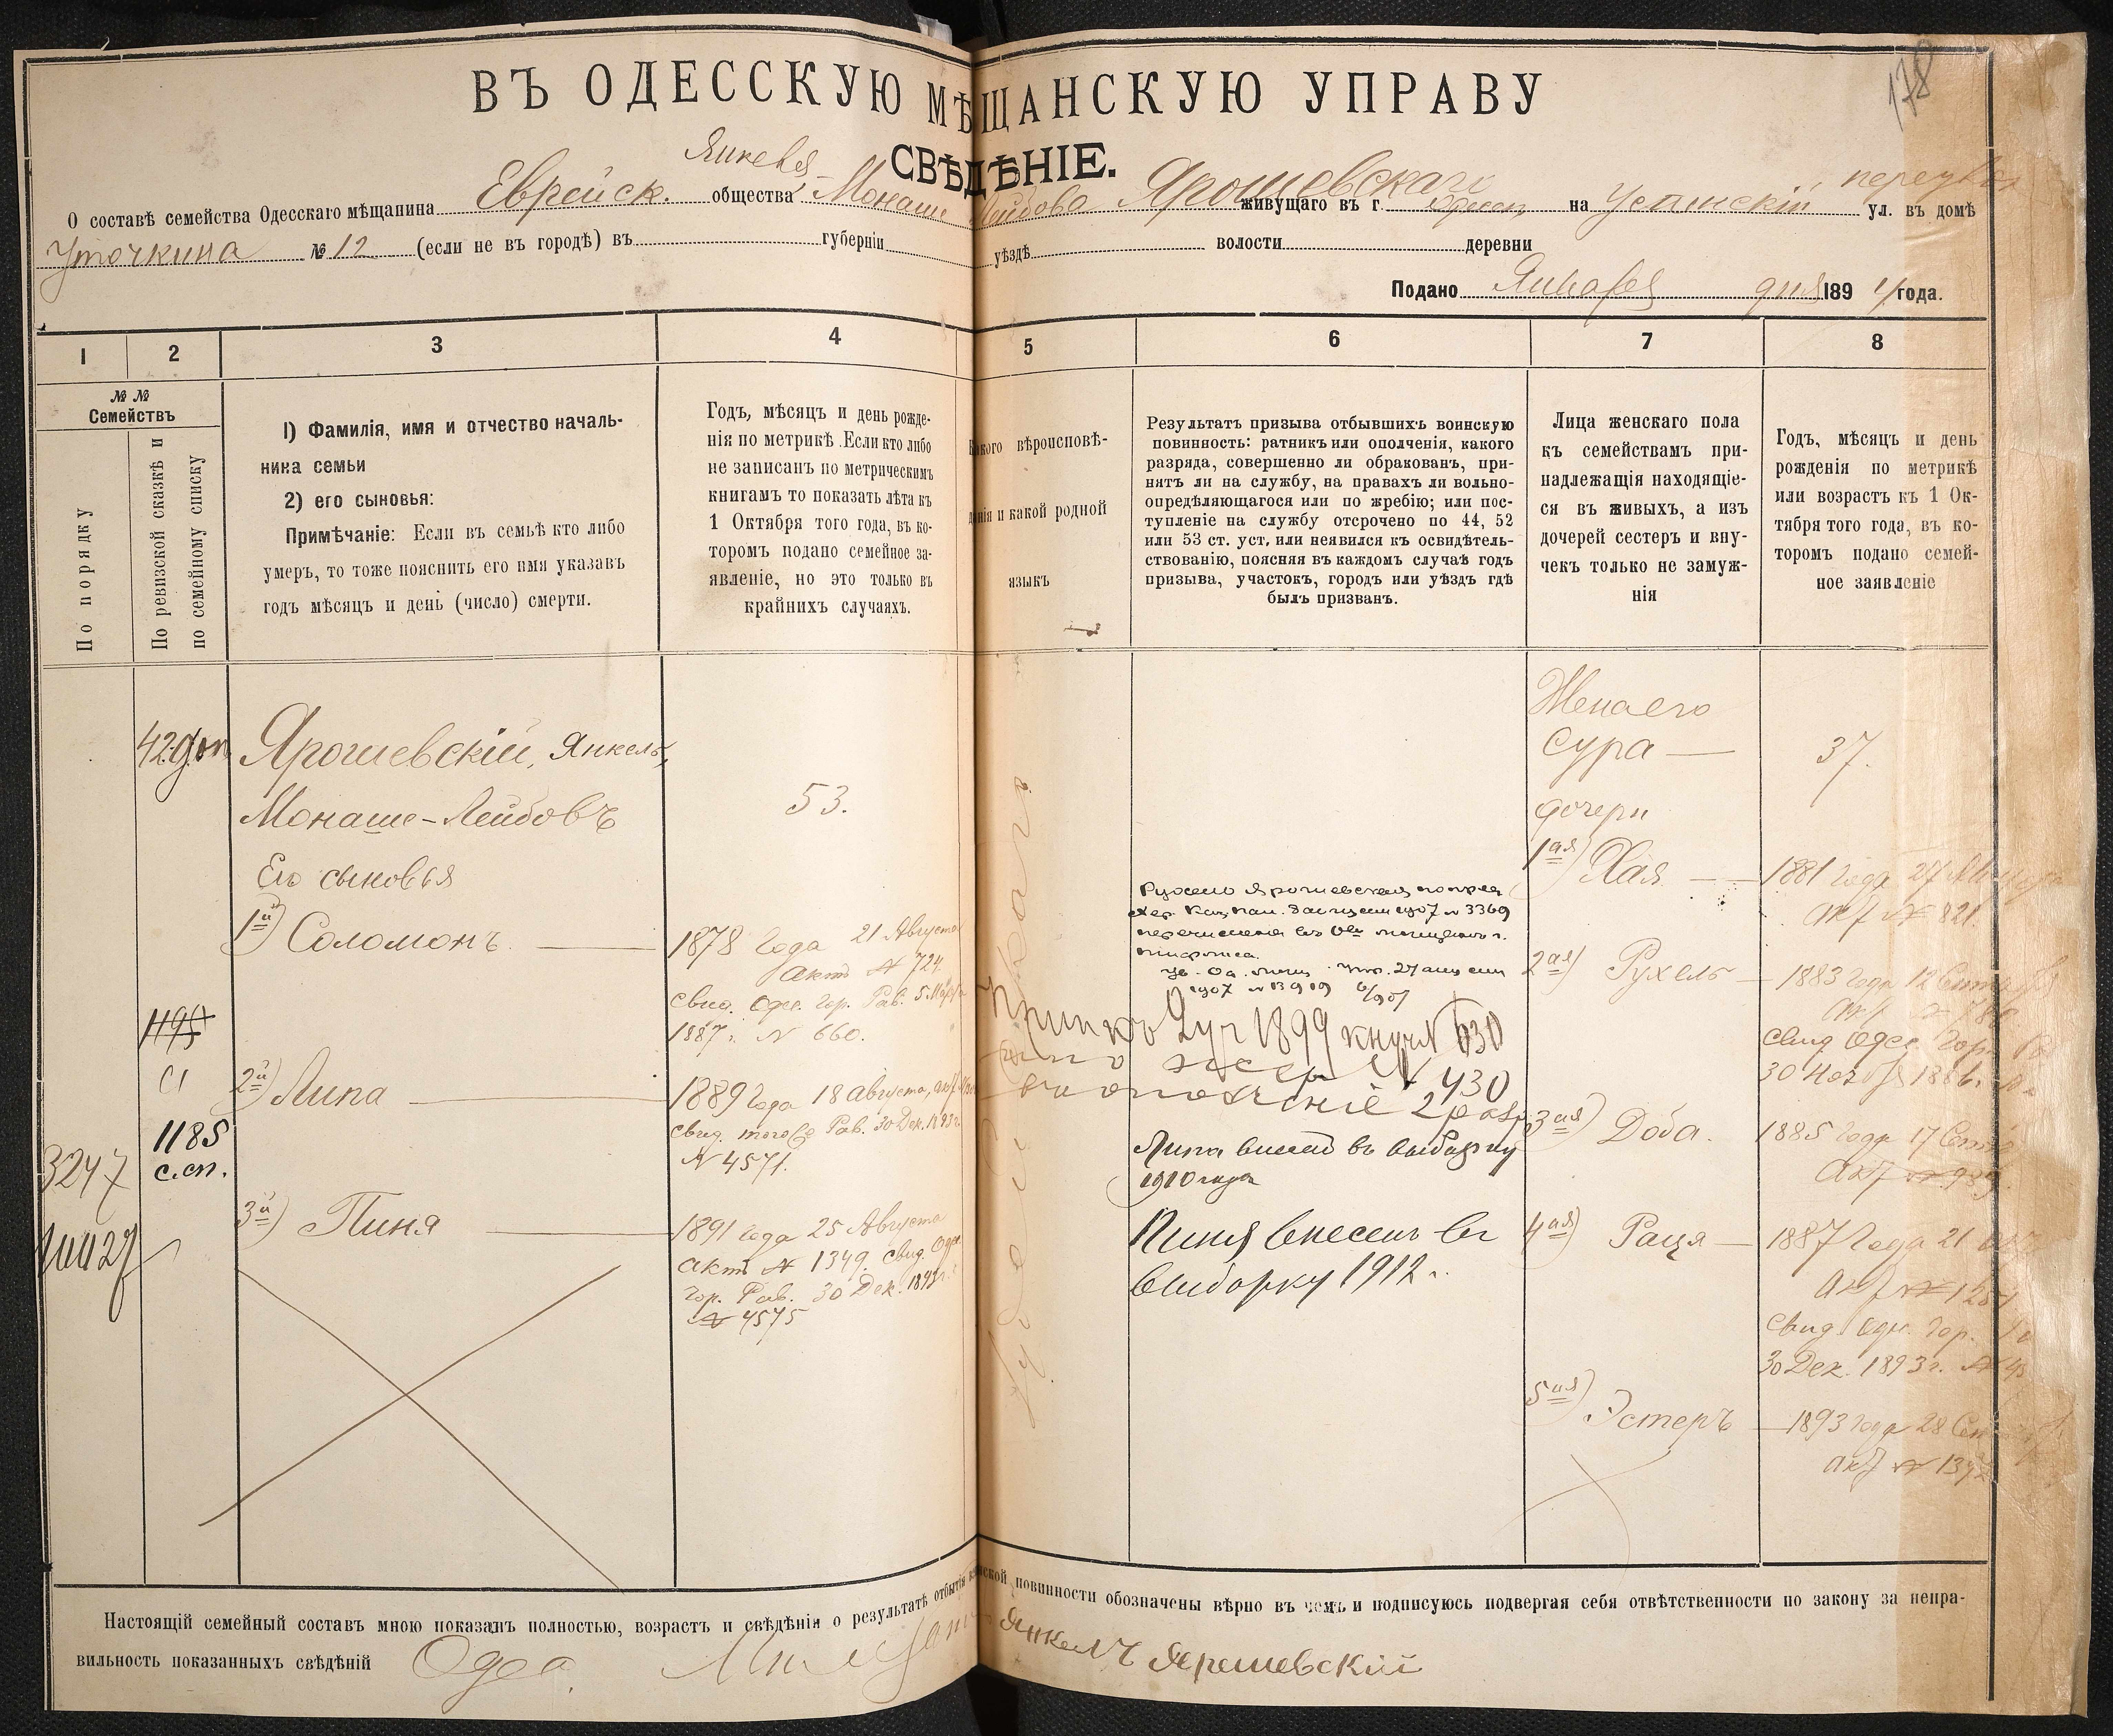 178
ВЪ ОДЕССКУЮ МѢЩАНСКУЮ УПРАВУ
СВѢДѢНІЕ.
Янкеля
О составѣ семейства Одесскаго мѣщанина Еврейск. общества Монаше Лейбова Ярошевскаго живущаго въ г. Одессѣ на Успенскій ул. въ домѣ
Уточкина № 12 (если не въ городѣ) въ губерніи уѣздѣ волости деревни
Подано Января дня 1894 года.
1 2 3 4 5 6 7 8
№ №
Семействъ
По порядку
По ревизской сказкѣ и
по семейному списку
1) Фамилія, имя и отчество началь-
ника семьи
2) его сыновья:
Примѣчаніе: Если въ семьѣ кто либо
умеръ, то тоже пояснить его имя указавъ
годъ мѣсяцъ и день (число) смерти.
Годъ, мѣсяцъ и день рожде-
нія по метрикѣ. Если кто либо
не записанъ по метрическимъ
книгамъ то показать лѣта къ
1 Октября того года, въ ко-
торомъ подано семейное за-
явленіе, но это только въ
крайнихъ случаяхъ.
Какого вѣроисповѣ-
данія и какой родной
языкъ
Результатъ призыва отбывшихъ воинскую
повинность: ратникъ или ополченія, какого
разряда, совершенно ли обракованъ, при-
нятъ ли на службу, на правахъ ли вольно-
опредѣляющагося или по жребію; или пос-
тупленіе на службу отсрочено по 44, 52
или 53 ст. уст, или неявился къ освидѣтель-
ствованію, поясняя въ каждомъ случаѣ годъ
призыва, участокъ, городъ или уѣздъ гдѣ
былъ призванъ.
Лица женскаго пола
къ семействамъ при-
надлежащія находящіе-
ся въ живыхъ, а изъ
дочерей сестеръ и вну-
чекъ только не замуж-
нія
Годъ, мѣсяцъ и день
рожденія по метрикѣ
или возрастъ къ 1 Ок-
тября того года, въ ко-
торомъ подано семей-
ное заявленіе
42 доп
Ярошевскій, Янкель
Монаше-Лейбовъ
53.
Его сыновья
1й) Соломонъ
1878 года 21 Августа
актъ № 724.
свид. Одес. Гор. Рав. 5 Марта
1887 г. № 660.
1195
1185
с.сп.
3247
2й) Липа
1889 года 18 Августа, акт
свид. того Рав. 30 Дек. 1893 г.
№ 4571.
3й) Пиня
1891 года 25 Августа
актъ № 1349. свид. Одес.
Гор. Рав. 30 Дек. 1893 г.
№ 4575
1907 № 3369
1907 № 13919
1899 № 630
№ 430
ополченіе 2 разр.
Липа внесенъ въ выборку
1910 года
Пиня внесенъ въ
выборку 1912 г.
Жена его
Сура
37.
дочери
1ая) Хая
1881 года 27
акт № 821.
2ая) Рухель
1883 года 12 Сентября
свид Одес. Гор. Рав
3ая) Доба.
1885 года 17
4ая) Раця
1887 года 21
свид. Одес. Гор.
30 Дек. 1893 г. №
5ая) Эстеръ
1893 года 28 Сен
Настоящій семейный составъ мною показанъ полностью, возрастъ и свѣдѣнія о результатѣ отбытія воинской повинности обозначены вѣрно въ чемъ и подписуюсь подвергая себя отвѣтственности по закону за непра-
вильность показанныхъ свѣдѣній
Янкель Ярошевскій